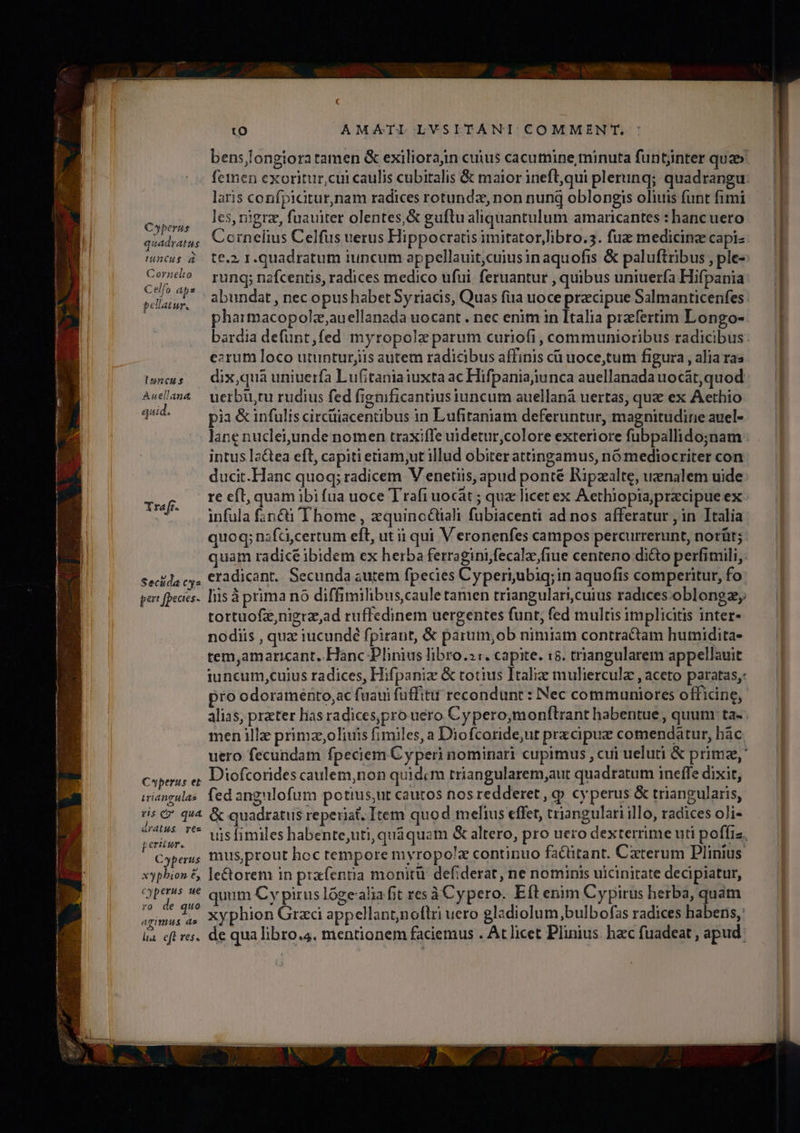 10 AMATI LVSITANI COMMENT.
bens, longiora tamen & exiliora, in cuius cacumine, minuta sunt, inter quæ
semen exoritur, cui caulis cubitalis & maior inest, qui plerunq; quadrangu
laris conspicitur, nam radices rotundæ, non nunq̃ oblongis oliuis sunt simi
les, nigræ, suauiter olentes, & gustu aliquantulum amaricantes: hanc uero
Cyperus quadratus iuncus à Cornelio Celso appellatur.
Cornelius Celsus uerus Hippocratis imitator, libro.3. suæ medicinæ capi=
te.21. quadratum iuncum appellauit, cuius in aquosis & palustribus, ple=
runq; nascentis, radices medico usui feruntur, quibus uniuersa Hispania
abundat, nec opus habet Syriacis, Quas sua uoce præcipue Salmanticenses
pharmacopolæ, auellanada uocant. nec enim in Italia præsertim Longo=
bardia desunt, sed myropolæ parum curiosi, communioribus radicibus
earum loco utuntur, iis autem radicibus affinis cū uoce, tum figura, alia ra=
Iuncus Auellana quid.
dix, quā uniuersa Lusitania iuxta ac Hispania, iunca auellanada uocāt, quod
uerbū, tu rudius sed significantius iuncum auellanā uertas, quæ ex Aethio
pia & insulis circūiacentibus in Lusitaniam deferuntur, magnitudine auel=
lanę nuclei, unde nomen traxisse uidetur, colore exteriore subpallido; nam
intus lactea est, capiti etiam, ut illud obiter attingamus, nō mediocriter con
ducit. Hanc quoq; radicem Venetiis, apud pontē Ripæalte, uænalem uide
Trasi.
re est, quam ibi sua uoce Trasi uocāt; quæ licet ex Aethiopia, præcipue ex
insula sancti Thome, æquinoctiali subiacenti ad nos afferatur, in Italia
quoq; nasci, certum est, ut ii qui Veronenses campos percurrerunt, norūt;
quam radicē ibidem ex herba ferragini, secalæ, siue centeno dicto persimili,
Secūda cyperi species.
eradicant. Secunda autem species Cyperi, ubiq; in aquosis comperitur, fo
liis à prima nō dissimilibus, caule tamen triangulari, cuius radices oblongæ,
tortuosæ, nigræ, ad ruffedinem uergentes sunt, sed multis implicitis inter=
nodiis, quæ iucundè spirant, & parum, ob nimiam contractam humidita=
tem, amaricant. Hanc Plinius libro.21. capite.18. triangularem appellauit
iuncum, cuius radices, Hispaniæ & totius Italiæ mulierculæ, aceto paratas,
pro odoramento, ac suaui suffitu recondunt: Nec communiores officine,
alias, præter has radices, pro uero Cypero, monstrant habentue, quum ta=
men illæ primæ, oliuis similes, a Dioscoride, ut præcipuæ comendātur, hāc
uero secundam speciem Cyperi nominari cupimus, cui ueluti & primæ,
Cyperus et triangularis & quadratus reperitur.
Dioscorides caulem, non quidem triangularem, aut quadratum inesse dixit,
sed angulosum potius, ut cautos nos redderet, ꝙ cyperus & triangularis,
& quadratus reperiat̃. Item quod melius esset, triangulari illo, radices oli=
uis similes habente, uti, quāquam & altero, pro uero dexterrime uti possi=
Cyperus xyphion &, cyperus uero de quo agimus alia est res.
mus, prout hoc tempore myropolæ continuo factitant. Cæterum Plinius
lectorem in præsentia monitū desiderat, ne nominis uicinitate decipiatur,
quum Cypirus lōge alia sit res à Cypero. Est enim Cypirus herba, quam
xyphion Græci appellant, nostri uero gladiolum, bulbosas radices habens,
de qua libro.4. mentionem faciemus. At licet Plinius hæc suadeat, apud